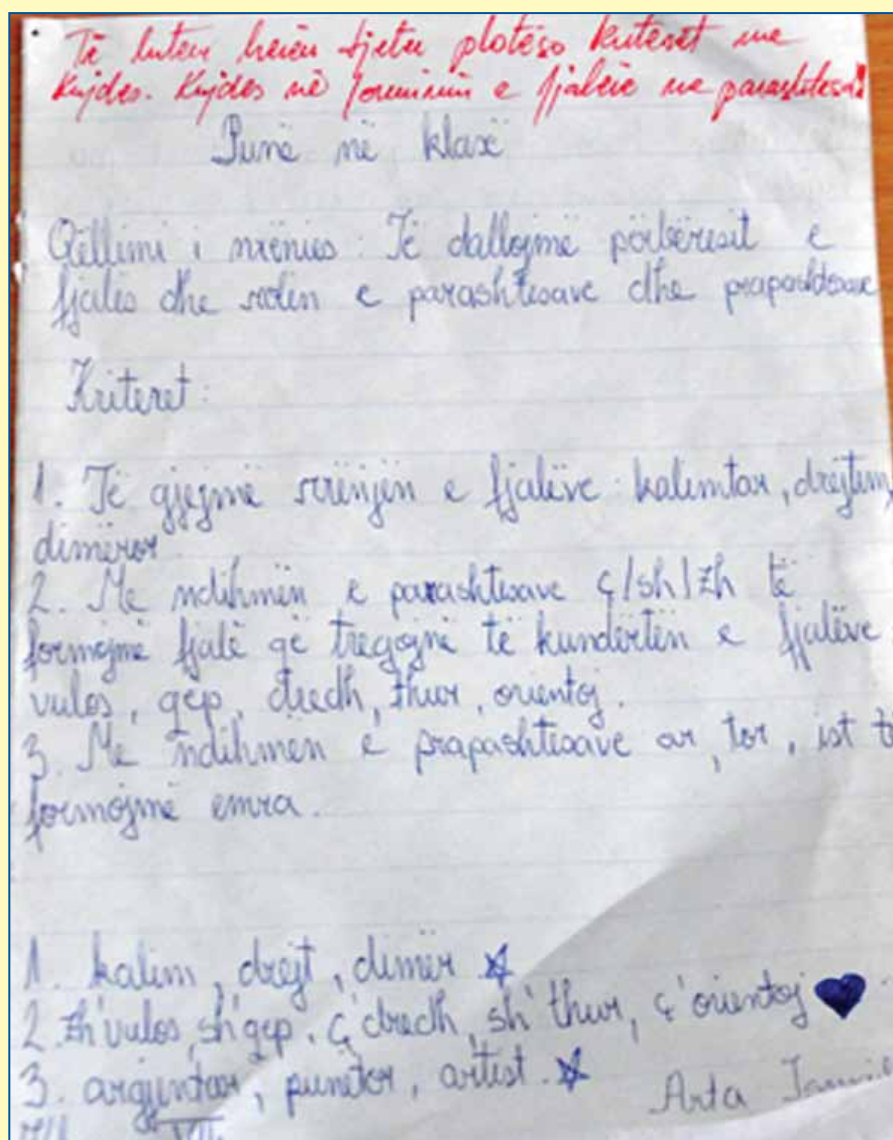 Të lutem herën tjetër plotëso kriteret me
kujdes. Kujdes në formimin e fjalëve me parashtesa!
Punë në klasë
Qëllimi i nxënies: Të dallojmë përbërësit e
fjalës dhe rolin e parashtesave dhe prapashtesave
Kriteret:
1. Të gjejmë rrënjën e fjalëve: kalimtar, drejtim,
dimëror
2. Me ndihmën e parashtesave ç/sh/zh të
formojmë fjalë që tregojnë të kundërtën e fjalëve
vulos, qep, dredh, thur, orientoj.
3. Me ndihmën e prapashtesave ar, tor, ist të
formojmë emra.
1. kalim, drejt, dimër
2. zh'vulos, sh'qep, ç'dredh, sh'thur, ç'orientoj
3. argjentar, punëtor, artist.
Arta
VII